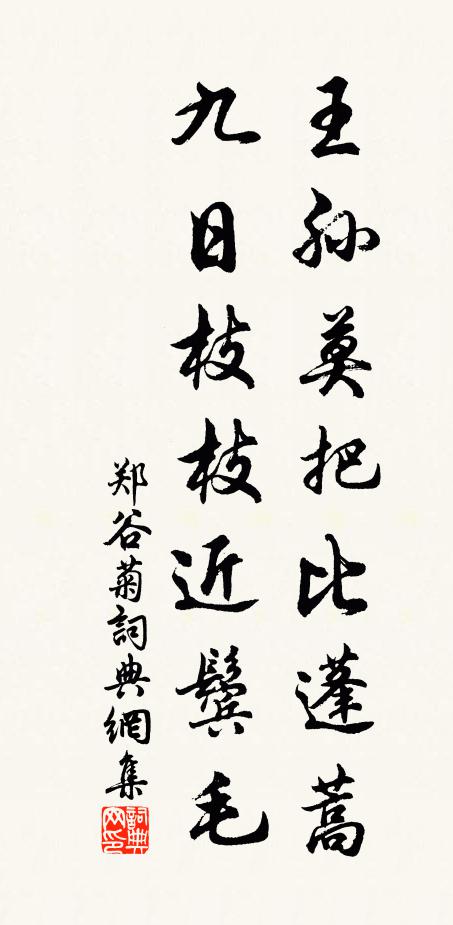 王孙莫把比蓬蒿
九日枝枝近鬓毛
郑谷菊詞典網集
詞典
网印